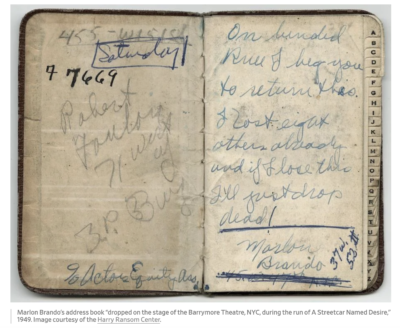 Saturday
7 7669
Robert
71 West
3R Buz
Actors Equity
On bended
knee I beg you
to return this.
I lost eight
others already
and if I lose this
I'll just drop
dead!
Marlon
Brando
37 W.
52 St
A
B
C
D
E
F
G
H
I
J
K
L
M
N
O
P
Q
R
S
T
U
V
Marlon Brando's address book "dropped on the stage of the Barrymore Theatre, NYC, during the run of A Streetcar Named Desire,"
1949. Image courtesy of the Harry Ransom Center.